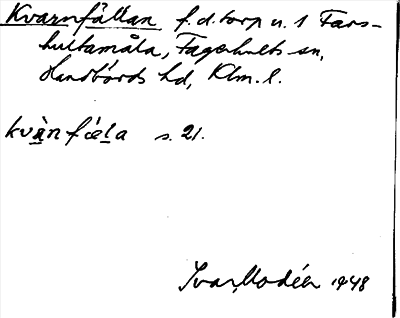 Kvarnfällan f.d. torp u. 1 Fars-
hultamåla, Fagerhults sn,
Handbörds hd, Klm. l.
kvàn fæla s. 21.
Ivar Modéer 1948